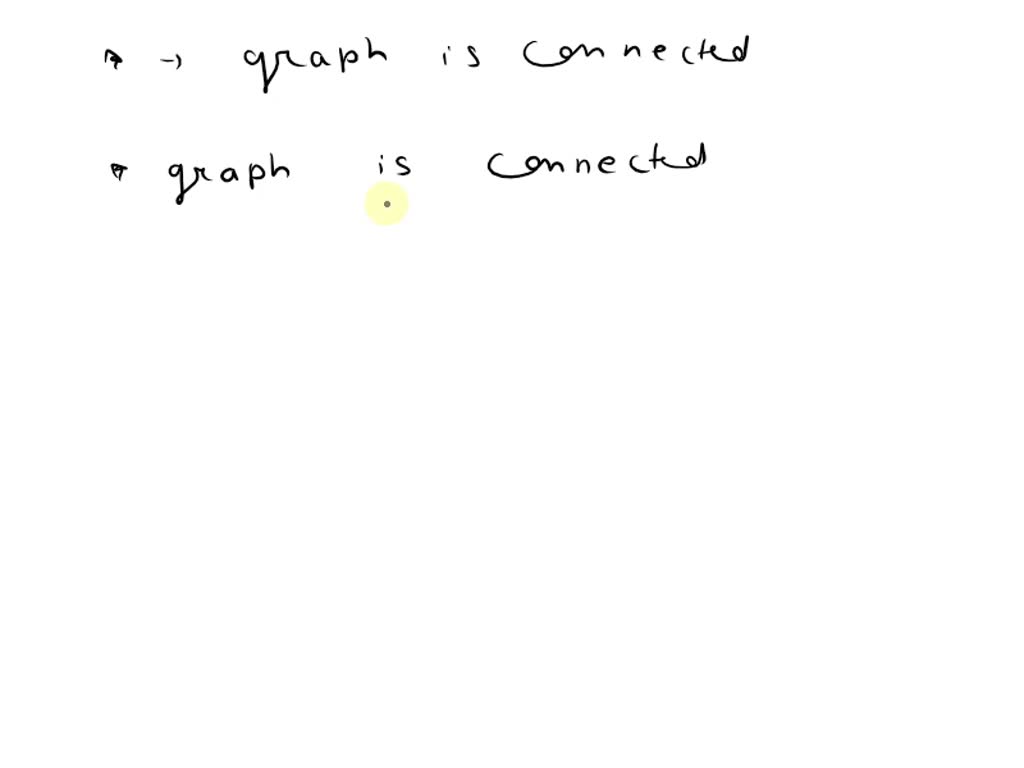 * → graph is connected
* graph is connected